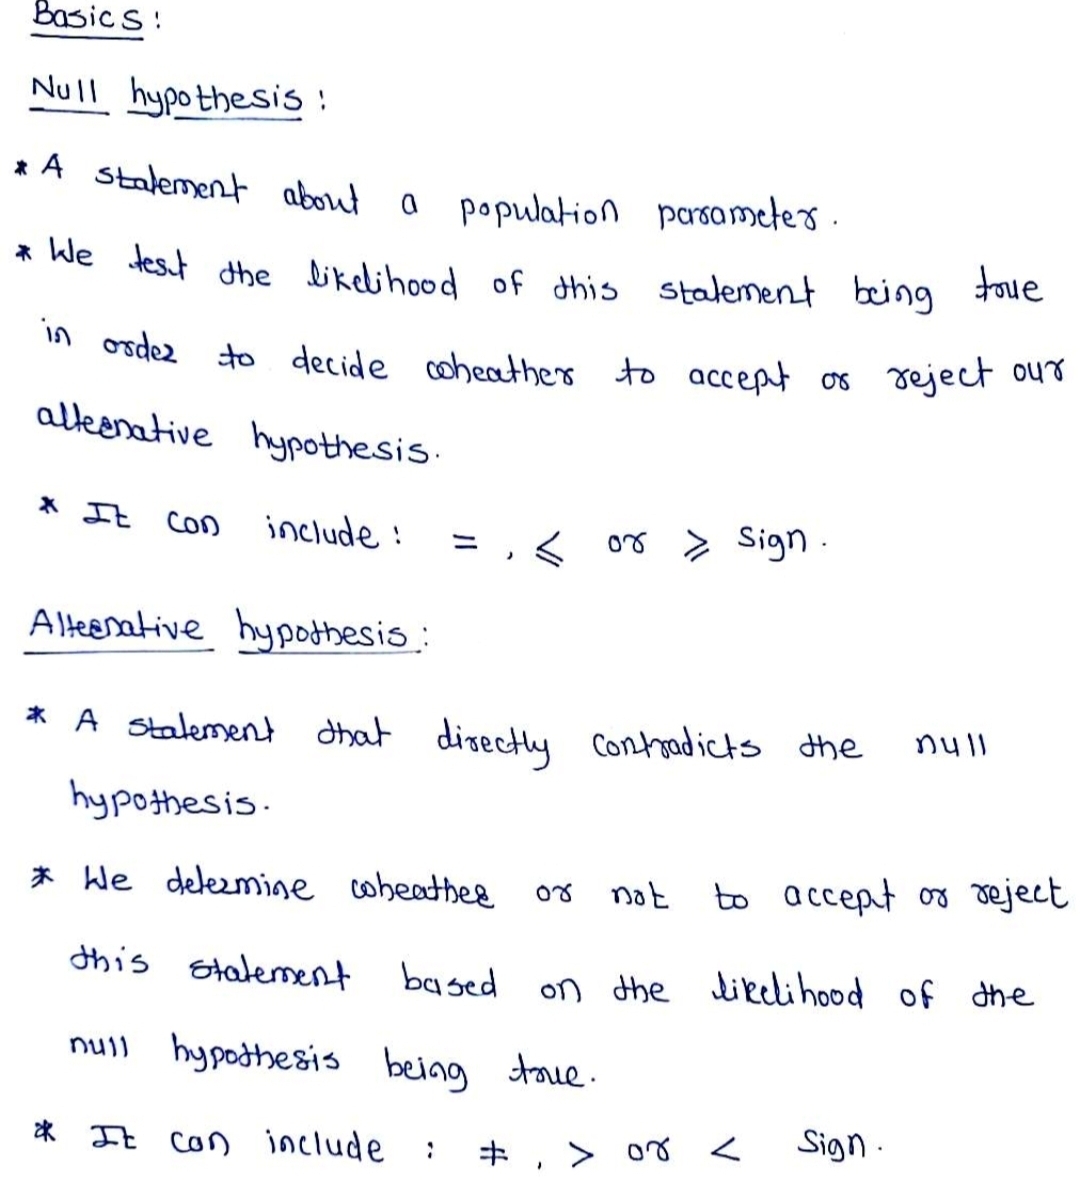 Basics :
Null hypothesis :
* A statement about a population parameter .
* We test the likelihood of this statement being true
in order to decide wheather to accept or reject our
alternative hypothesis.
* It can include : = , ⩽ or ⩾ sign .
Alternative hypothesis :
* A statement that directly contradicts the null
hypothesis.
* We determine wheather or not to accept or reject
this statement based on the likelihood of the
null hypothesis being true.
* It can include : ≠ , > or < sign .